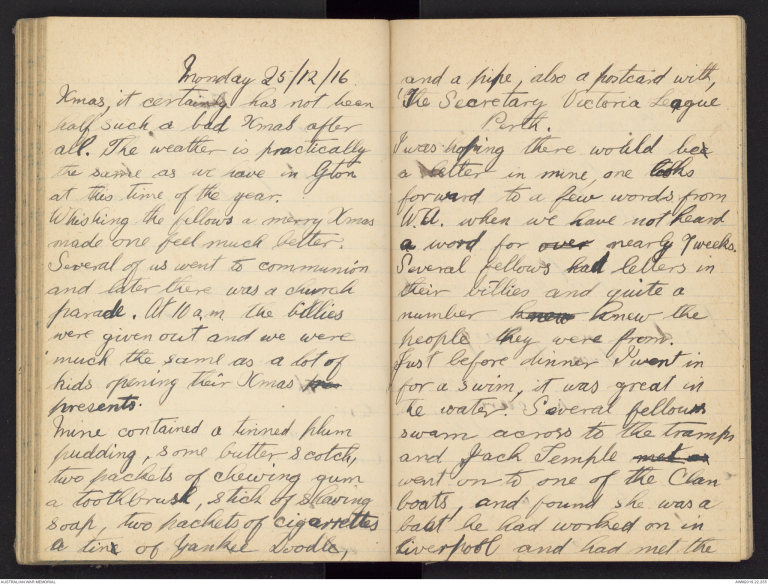 Monday 25/12/16.
Xmas, it certainly has not been
half such a bad Xmas after
all. The weather is practically
the same as we have in Gton
at this time of the year.
Whishing the fellows a merry Xmas
made one feel much better.
Several of us went to communion
and later there was a church
parade. At 10 a.m. the billies
were given out and we were
much the same as a lot of
kids opening their Xmas
presents.
Mine contained a tinned plum
pudding, some butter scotch,
two packets of chewing gum
a toothbrush, stick of shaving
soap, two packets of cigarrettes
a tin of Yankee Doodle,
and a pipe, also a postcard with,
"The Secretary Victoria League
Perth.
I was hoping there would be
a letter in mine, one looks
forward to a few words from
W.A. when we have not heard
a word for over nearly 7 weeks.
Several fellows had letters in
their billies and quite a
number knew knew the
people they were from.
Just before dinner I went in
for a swim, it was great in
he water. Several fellows
swam across to the tramps
and Jack Temple met as
went on to one of the Clan
boats, and found she was a
boat he had worked on in
Liverpool and had met the
AUSTRALIAN WAR MEMORIAL